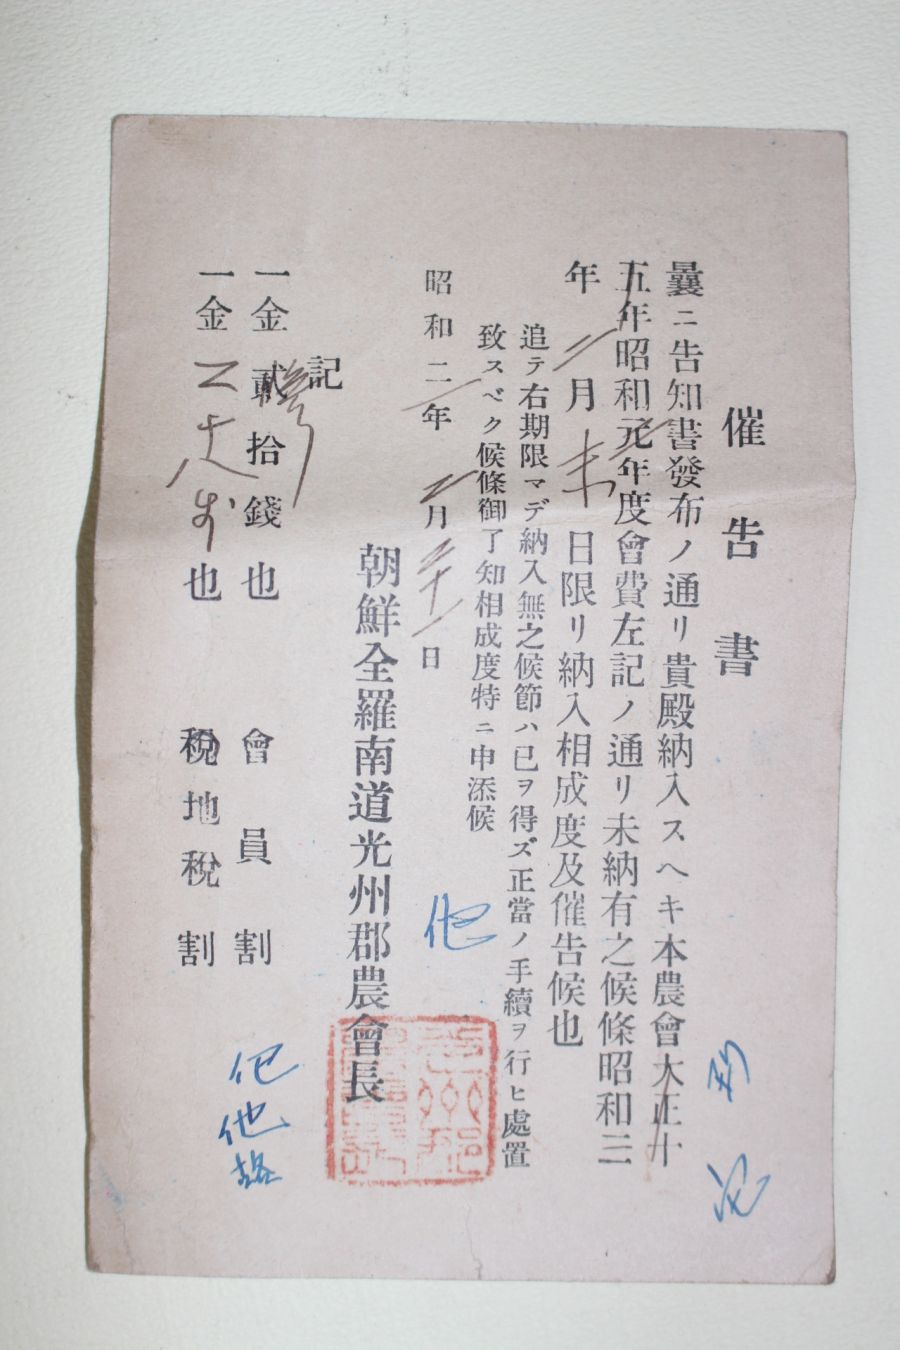 催告書
曩ニ告知書發布ノ通リ貴殿納入スヘキ本農會大正十
五年昭和元年度會費左記ノ通リ未納有之候條昭和三
年二月末日限リ納入相成度及催告候也
追テ右期限マデ納入無之候節ハ已ヲ得ズ正當ノ手續ヲ行ヒ處置
致スベク候條御了知相成度特ニ申添候
昭和二年二月 日
朝鮮全羅南道光州郡農會長
記
一金貳拾錢也 會員割
一金 也 稅地稅割